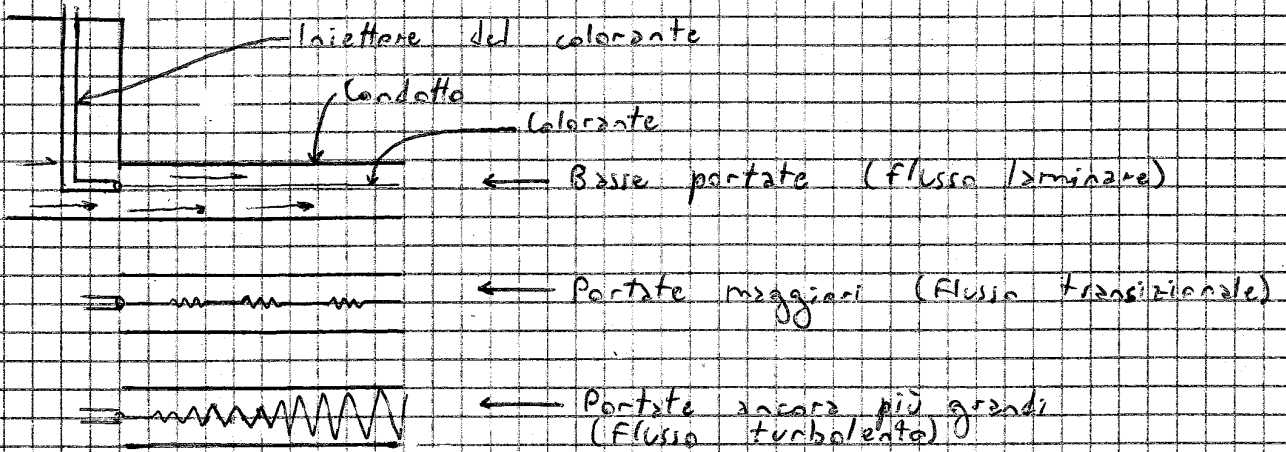 Iniettore del colorante
Condotto
Colorante
Basse portate (flusso laminare)
Portate maggiori (flusso transizionale)
Portate ancora più grandi
(flusso turbolento)